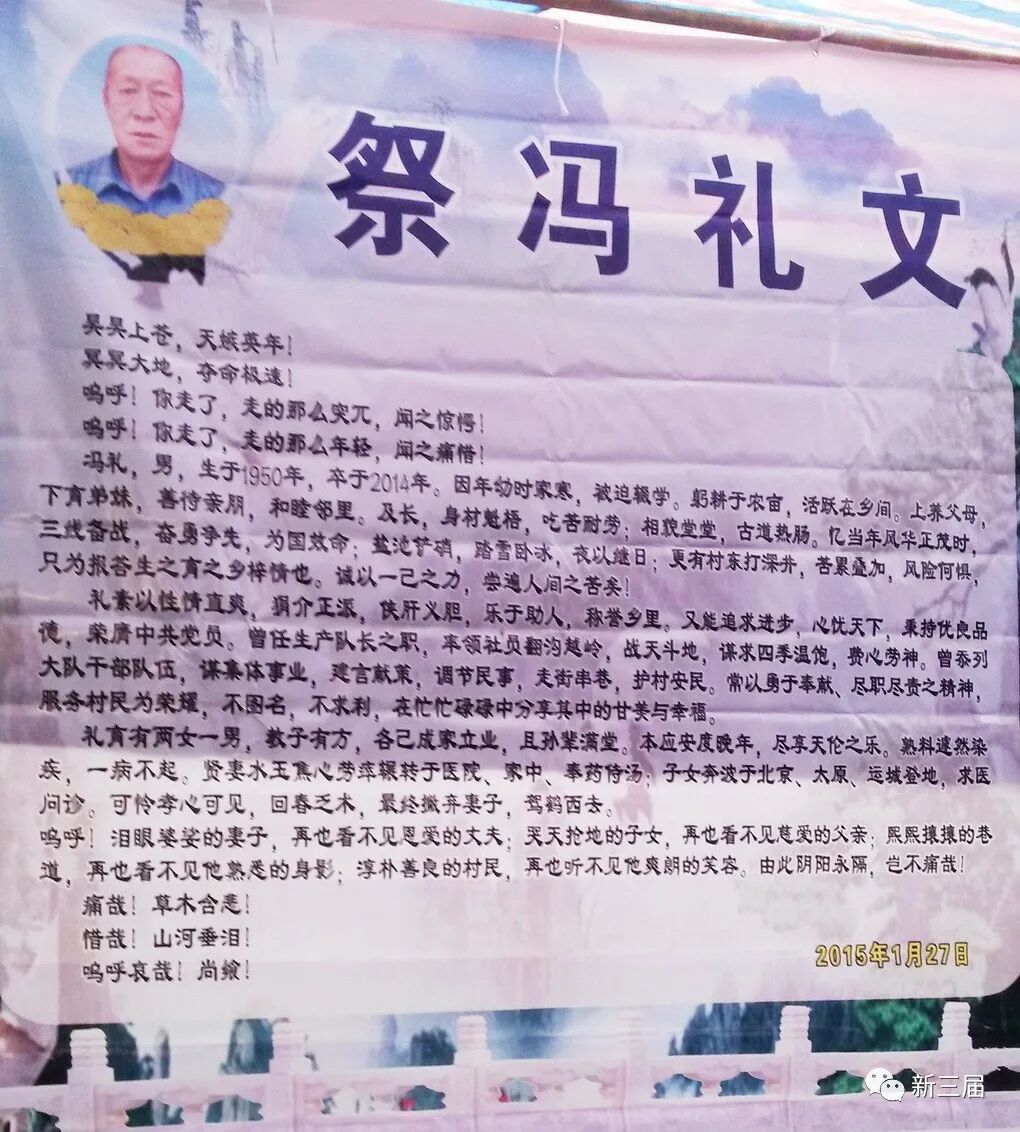 祭冯礼文
昊昊上苍，天嫉英年！
冥冥大地，夺命极速！
呜呼！你走了，走的那么突兀，闻之惊愕！
呜呼！你走了，走的那么年轻，闻之痛惜！
冯礼，男，生于1950年，卒于2014年。因年幼时家寒，被迫辍学。躬耕于农亩，活跃在乡间。上养父母，
下育弟妹，善待亲朋，和睦邻里。及长，身材魁梧，吃苦耐劳；相貌堂堂，古道热肠。忆当年风华正茂时，
三线备战，奋勇争先，为国效命；盐池铲硝，踏雪卧冰，夜以继日；更有村东打深井，苦累叠加，风险何惧，
只为报答生之育之乡梓情也。诚以一己之力，尝遍人间之苦矣！
礼素以性情直爽，狷介正派，侠肝义胆，乐于助人，称誉乡里。又能追求进步，心忧天下，秉持优良品
德，荣膺中共党员。曾任生产队长之职，率领社员翻沟越岭，战天斗地，谋求四季温饱，费心劳神。曾忝列
大队干部队伍，谋集体事业，建言献策，调节民事，走街串巷，护村安民。常以勇于奉献、尽职尽责之精神，
服务村民为荣耀，不图名，不求利，在忙忙碌碌中分享其中的甘美与幸福。
礼育有两女一男，教子有方，各己成家立业，且孙辈满堂。本应安度晚年，尽享天伦之乐。熟料遽然染
疾，一病不起。贤妻水玉焦心劳瘁辗转于医院、家中、奉药侍汤；子女奔波于北京、太原、运城登地，求医
问诊。可怜孝心可见，回春乏术，最终撇弃妻子，驾鹤西去。
呜呼！泪眼婆娑的妻子，再也看不见恩爱的丈夫；哭天抢地的子女，再也看不见慈爱的父亲；熙熙攘攘的巷
道，再也看不见他熟悉的身影；淳朴善良的村民，再也听不见他爽朗的笑容。由此阴阳永隔，岂不痛哉！
痛哉！草木含悉！
惜哉！山河垂泪！
呜呼哀哉！尚飨！
2015年1月27日
新三届